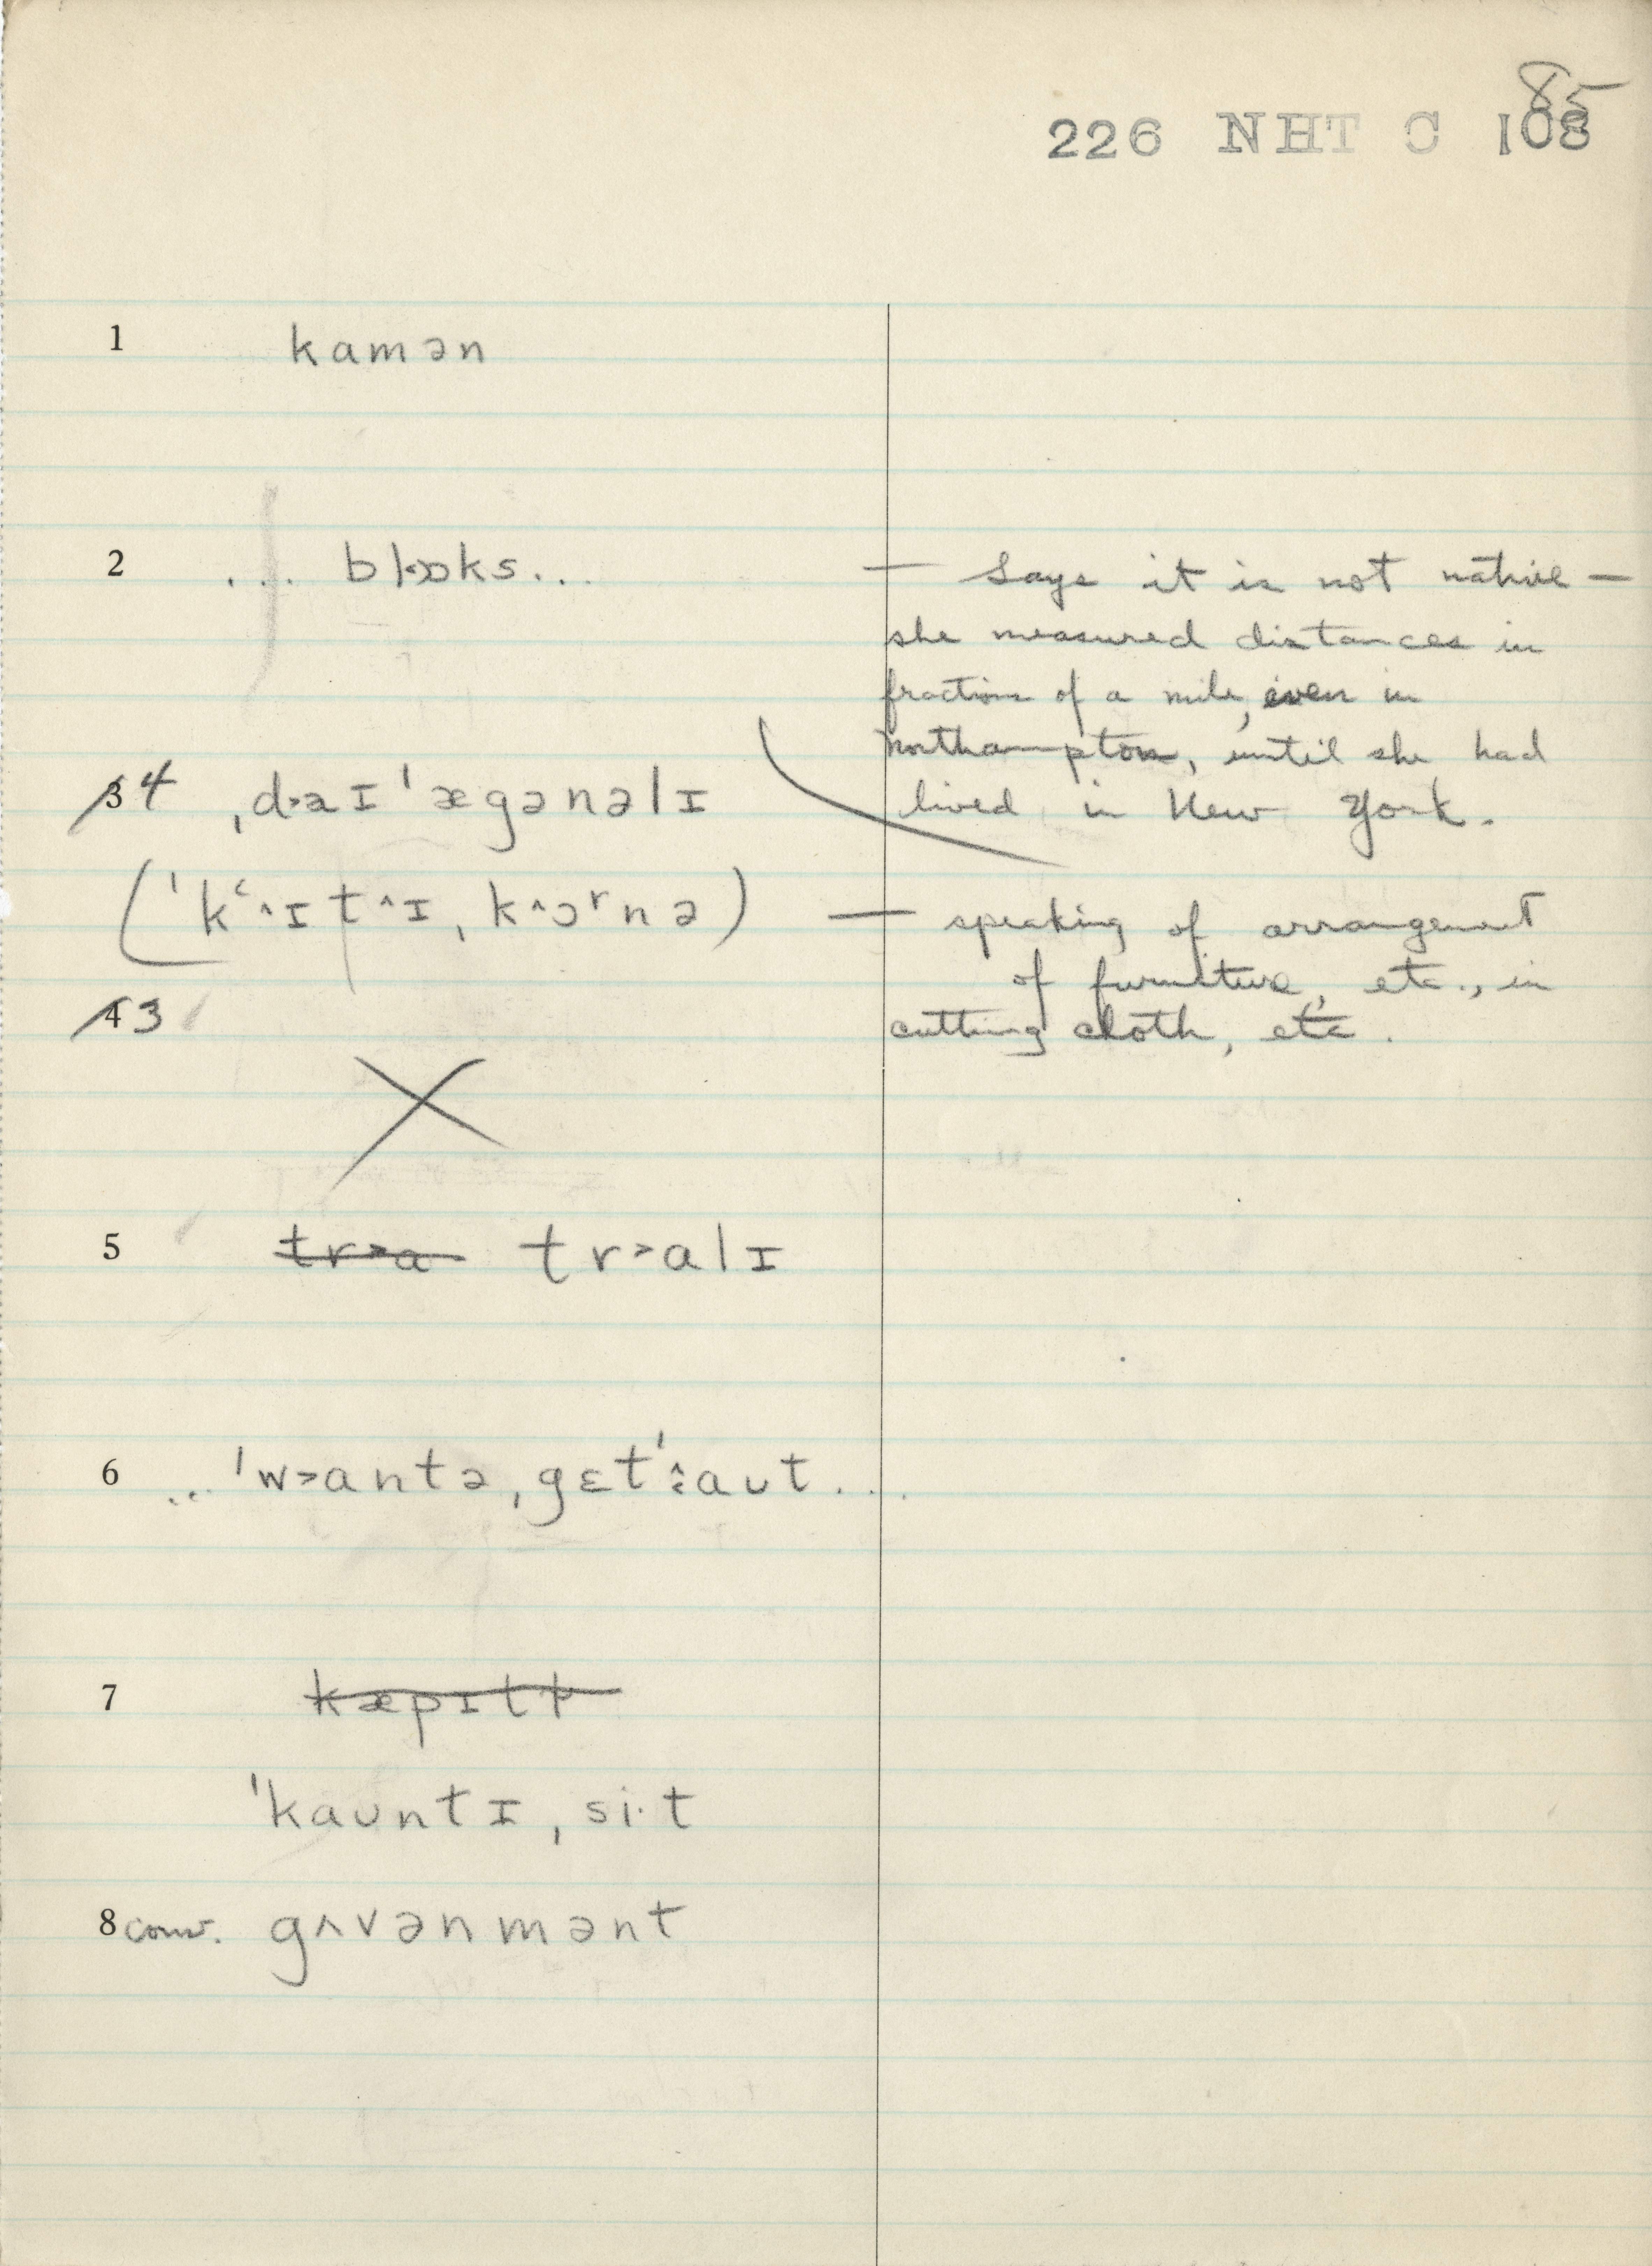 85
226 NHT C 108
1 kamən
2 ... blɒks... — Says it is not native —
she measured distances in
fraction of a mile, even in
Northampton, until she had
lived in New York.
3 4 ˌd˃aɪˈægənəlɪ
(ˈkʻ^ɪt^ɪˌk^ɔʳnə) — speaking of arrangement
of furniture, etc., in
cutting cloth, etc.
4 3
X
5 tr˃a tr˃alɪ
6 ... ˈw˃antəˌgɛtˈ˄:aʊt...
7 kæpɪtḷ
ˈkaʊntɪˌsi·t
8 conv. gʌvənmənt